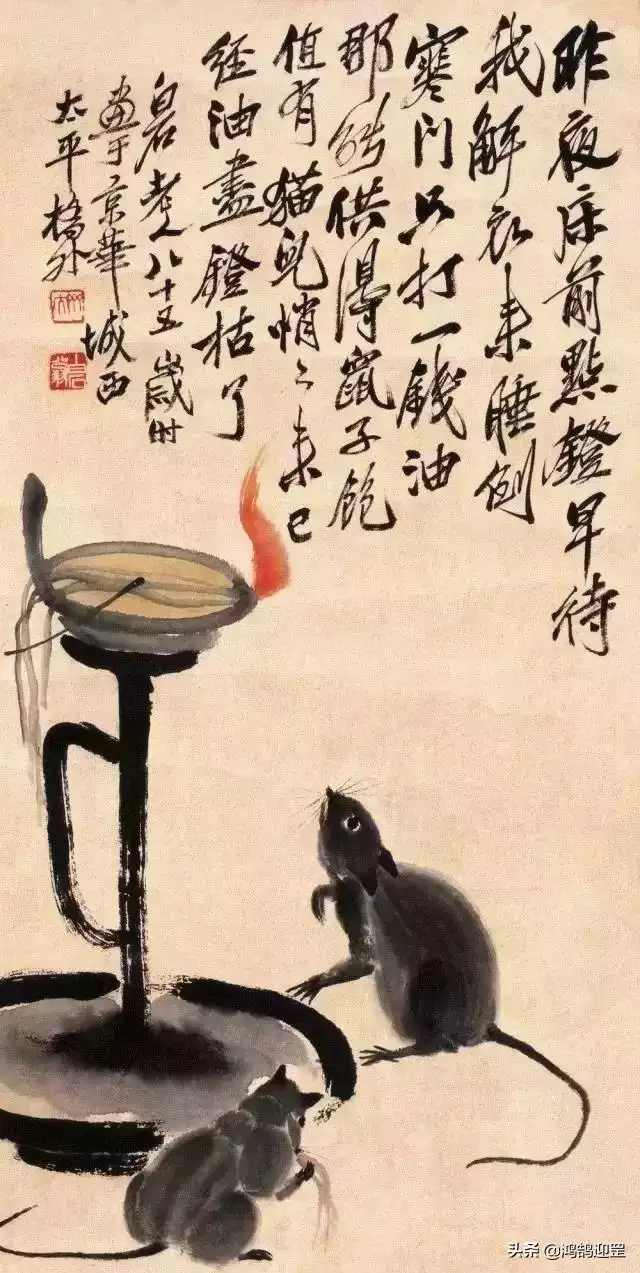 昨夜床前點鐙早待
我解衣来睡倒
寒门只打一錢油
那能供得鼠子飽
值有猫兒悄々来已
經油盡鐙枯了
白石老人八十五歲时
畫于京華城西
太平橋外
头条 @鸿鹄迎罡